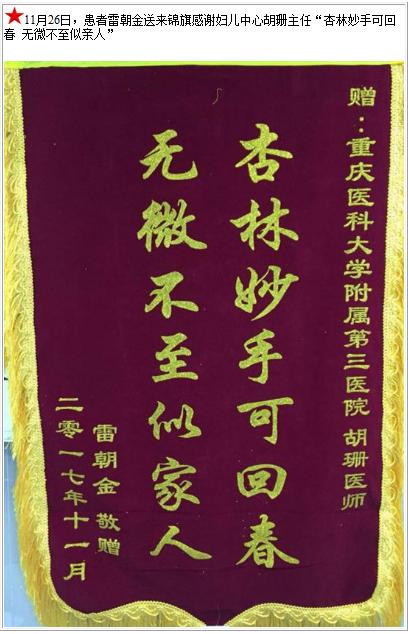 11月26日，患者雷朝金送来锦旗感谢妇儿中心胡珊主任“杏林妙手可回
春 无微不至似亲人”
赠：重庆医科大学附属第三医院 胡珊医师
杏林妙手可回春
无微不至似家人
雷朝金 敬赠
二零一七年十一月